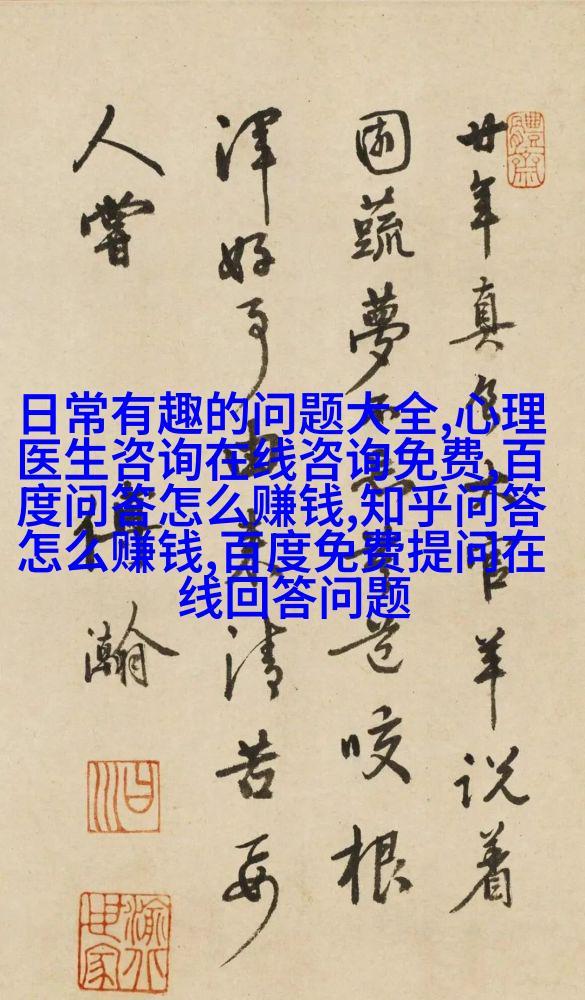 日常有趣的问题大全,心理
医生咨询在线咨询免费,百
度问答怎么赚钱,知乎问答
怎么赚钱,百度免费提问在
线回答问题
廿年真大官羊说着
园蔬夢咬根
渾好事由来清苦要
人嘗
瀚